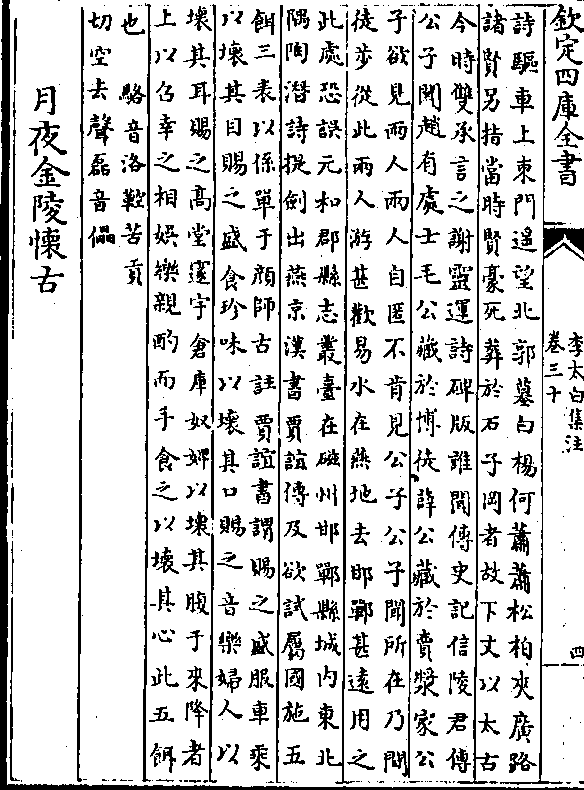 欽定四庫全書
李太白集注
卷三十
四
詩驅車上東門遥望北郭墓白楊何蕭蕭松柏夾廣路
諸賢另指當時賢豪死葬於石子岡者故下文以太古
今時雙承言之謝靈運詩碑版誰聞傳史記信陵君傳
公子聞趙有處士毛公藏於博徒薛公藏於賣漿家公
子欲見兩人兩人自匿不肯見公子公子聞所在乃間
徒步從此兩人游甚歡易水在燕地去邯鄲甚遠用之
此處恐誤元和郡縣志叢臺在磁州邯鄲縣城内東北
隅陶潜詩提劍出燕京漢書賈誼傳及欲試屬國施五
餌三表以係單于顔師古註賈誼書謂賜之盛服車乘
以壞其目賜之盛食珍味以壞其口賜之音樂婦人以
壞其耳賜之高堂邃宇倉庫奴婢以壞其腹于來降者
上以召幸之相娯樂親酌而手食之以壞其心此五餌
也 駱音洛鞚苦貢
切空去聲磊音儡
月夜金陵懷古